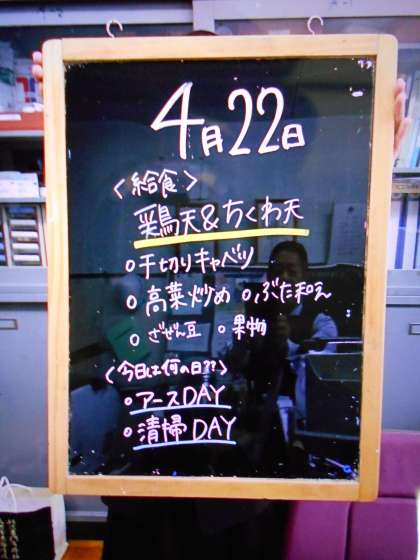 4月22日
<給食>
鶏天&ちくわ天
○千切りキャベツ
○高菜炒め ○ぶた和え
○ざぜん豆 ○果物
<今日は何の日??>
○アースDAY
○清掃DAY